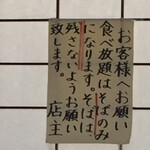 お客様へお願い
食べ放題はそばのみ
になります。そばは、
残さないようお願い
致します。
店主